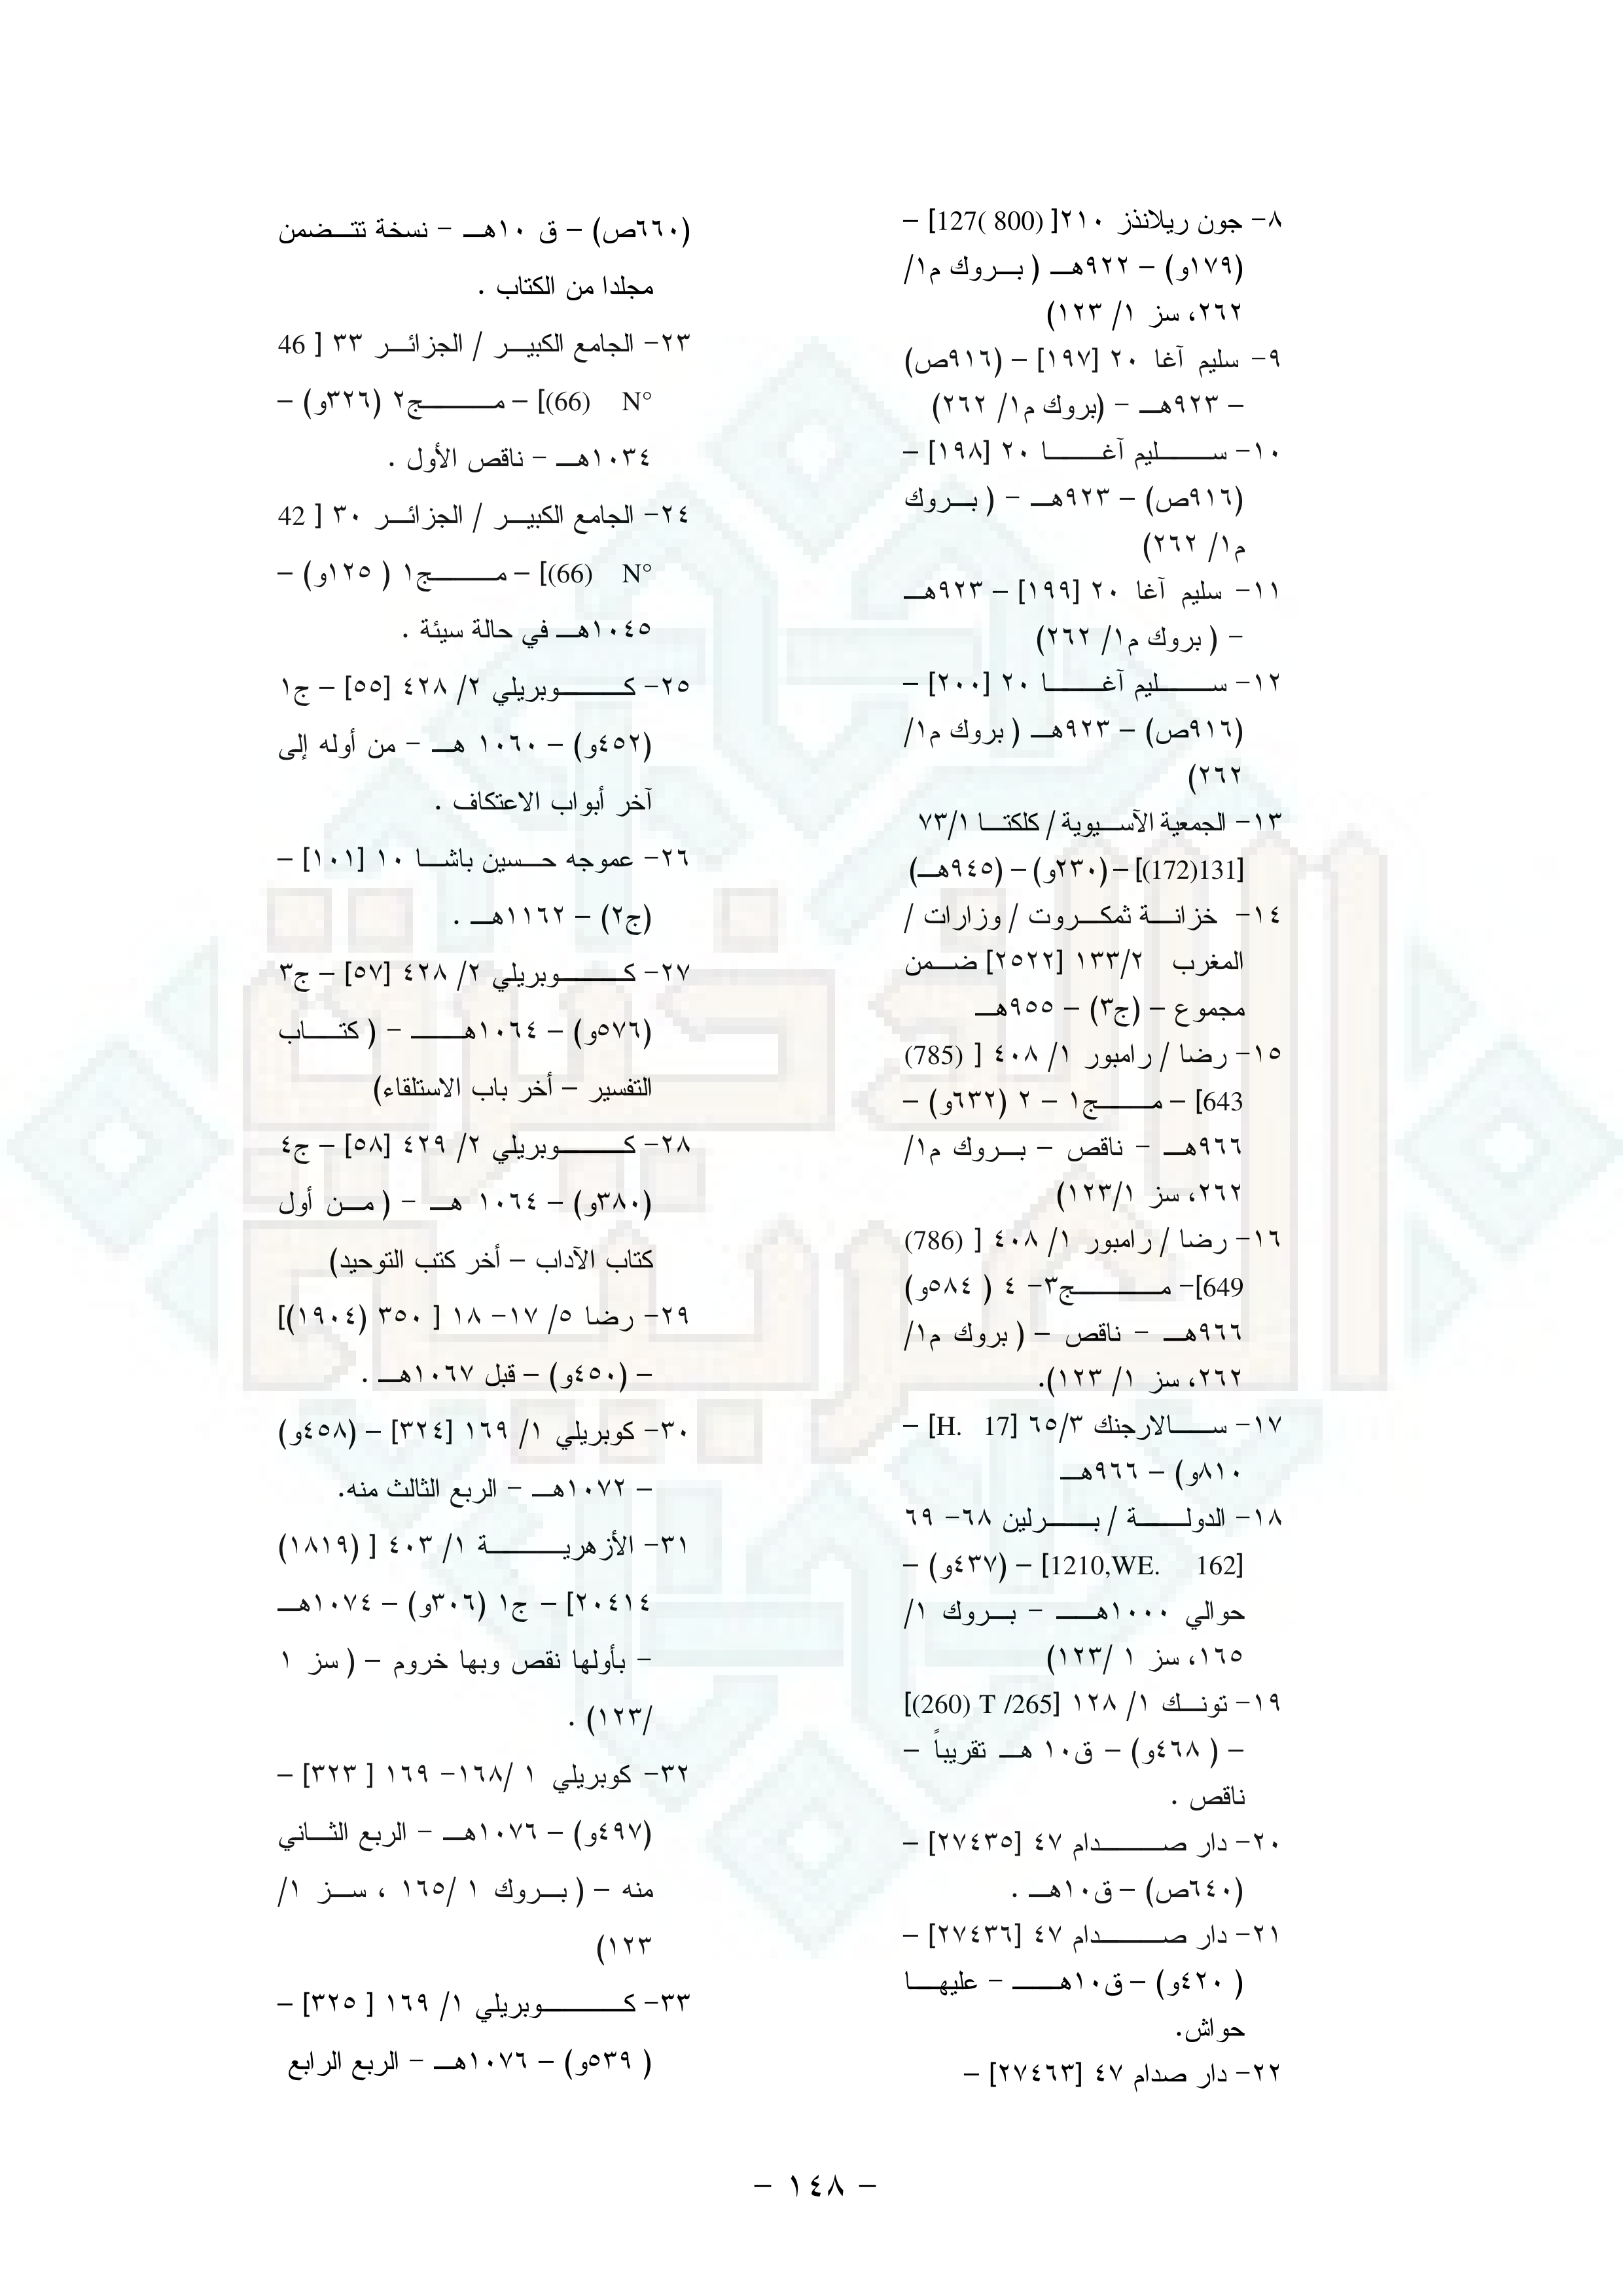 ٨- جون ريلاندز ٢١٠[ (800 )127] –
(١٧٩و) – ٩٢٢هـ ( بروك م١/
٢٦٢، سز ١/ ١٢٣)
٩- سليم آغا ٢٠ [١٩٧] – (٩١٦ص)
– ٩٢٣هـ – (بروك م١/ ٢٦٢)
١٠- سليم آغا ٢٠ [١٩٨] –
(٩١٦ص) – ٩٢٣هـ – ( بروك
م١/ ٢٦٢)
١١- سليم آغا ٢٠ [١٩٩] – ٩٢٣هـ
– ( بروك م١/ ٢٦٢)
١٢- سليم آغا ٢٠ [٢٠٠] –
(٩١٦ص) – ٩٢٣هـ ( بروك م١/
٢٦٢)
١٣- الجمعية الآسيوية / كلكتا ٧٣/١
[131(172)] – (٢٣٠و) – (٩٤٥هـ)
١٤- خزانة ثمكروت / وزارات /
المغرب ١٣٣/٢ [٢٥٢٢] ضمن
مجموع – (ج٣) – ٩٥٥هـ
١٥- رضا / رامبور ١/ ٤٠٨ [ (785)
643] – مج١ – ٢ (٦٣٢و) –
٩٦٦هـ – ناقص – بروك م١/
٢٦٢، سز ١٢٣/١)
١٦- رضا / رامبور ١/ ٤٠٨ [ (786)
649]- مج٣- ٤ ( ٥٨٤و)
٩٦٦هـ – ناقص – ( بروك م١/
٢٦٢، سز ١/ ١٢٣).
١٧- سالارجنك ٦٥/٣ [H. 17] –
٨١٠و) – ٩٦٦هـ
١٨- الدولة / برلين ٦٨- ٦٩
[1210,WE. 162] – (٤٣٧و) –
حوالي ١٠٠٠هـ – بروك ١/
١٦٥، سز ١ /١٢٣)
١٩- تونك ١/ ١٢٨ [T /265 (260)]
– ( ٤٦٨و) – ق١٠ هـ تقريباً –
ناقص .
٢٠- دار صدام ٤٧ [٢٧٤٣٥] –
(٦٤٠ص) – ق١٠هـ .
٢١- دار صدام ٤٧ [٢٧٤٣٦] –
( ٤٢٠و) – ق١٠هـ – عليها
حواش.
٢٢- دار صدام ٤٧ [٢٧٤٦٣] –
(٦٦٠ص) – ق ١٠هـ – نسخة تتضمن
مجلدا من الكتاب .
٢٣- الجامع الكبير / الجزائر ٣٣ [ 46
N° (66)] – مج٢ (٣٢٦و) –
١٠٣٤هـ – ناقص الأول .
٢٤- الجامع الكبير / الجزائر ٣٠ [ 42
N° (66)] – مج١ ( ١٢٥و) –
١٠٤٥هـ في حالة سيئة .
٢٥- كوبريلي ٢/ ٤٢٨ [٥٥] – ج١
(٤٥٢و) – ١٠٦٠ هـ – من أوله إلى
آخر أبواب الاعتكاف .
٢٦- عموجه حسين باشا ١٠ [١٠١] –
(ج٢) – ١١٦٢هـ .
٢٧- كوبريلي ٢/ ٤٢٨ [٥٧] – ج٣
(٥٧٦و) – ١٠٦٤هـ – ( كتاب
التفسير – أخر باب الاستلقاء)
٢٨- كوبريلي ٢/ ٤٢٩ [٥٨] – ج٤
(٣٨٠و) – ١٠٦٤ هـ – ( من أول
كتاب الآداب – أخر كتب التوحيد)
٢٩- رضا ٥/ ١٧- ١٨ [ ٣٥٠ (١٩٠٤)]
– (٤٥٠و) – قبل ١٠٦٧هـ .
٣٠- كوبريلي ١/ ١٦٩ [٣٢٤] – (٤٥٨و)
– ١٠٧٢هـ – الربع الثالث منه.
٣١- الأزهرية ١/ ٤٠٣ [ (١٨١٩)
٢٠٤١٤] – ج١ (٣٠٦و) – ١٠٧٤هـ
– بأولها نقص وبها خروم – ( سز ١
/١٢٣) .
٣٢- كوبريلي ١ /١٦٨- ١٦٩ [ ٣٢٣] –
(٤٩٧و) – ١٠٧٦هـ – الربع الثاني
منه – ( بروك ١ /١٦٥ ، سز ١/
١٢٣)
٣٣- كوبريلي ١/ ١٦٩ [ ٣٢٥] –
( ٥٣٩و) – ١٠٧٦هـ – الربع الرابع
– ١٤٨ –